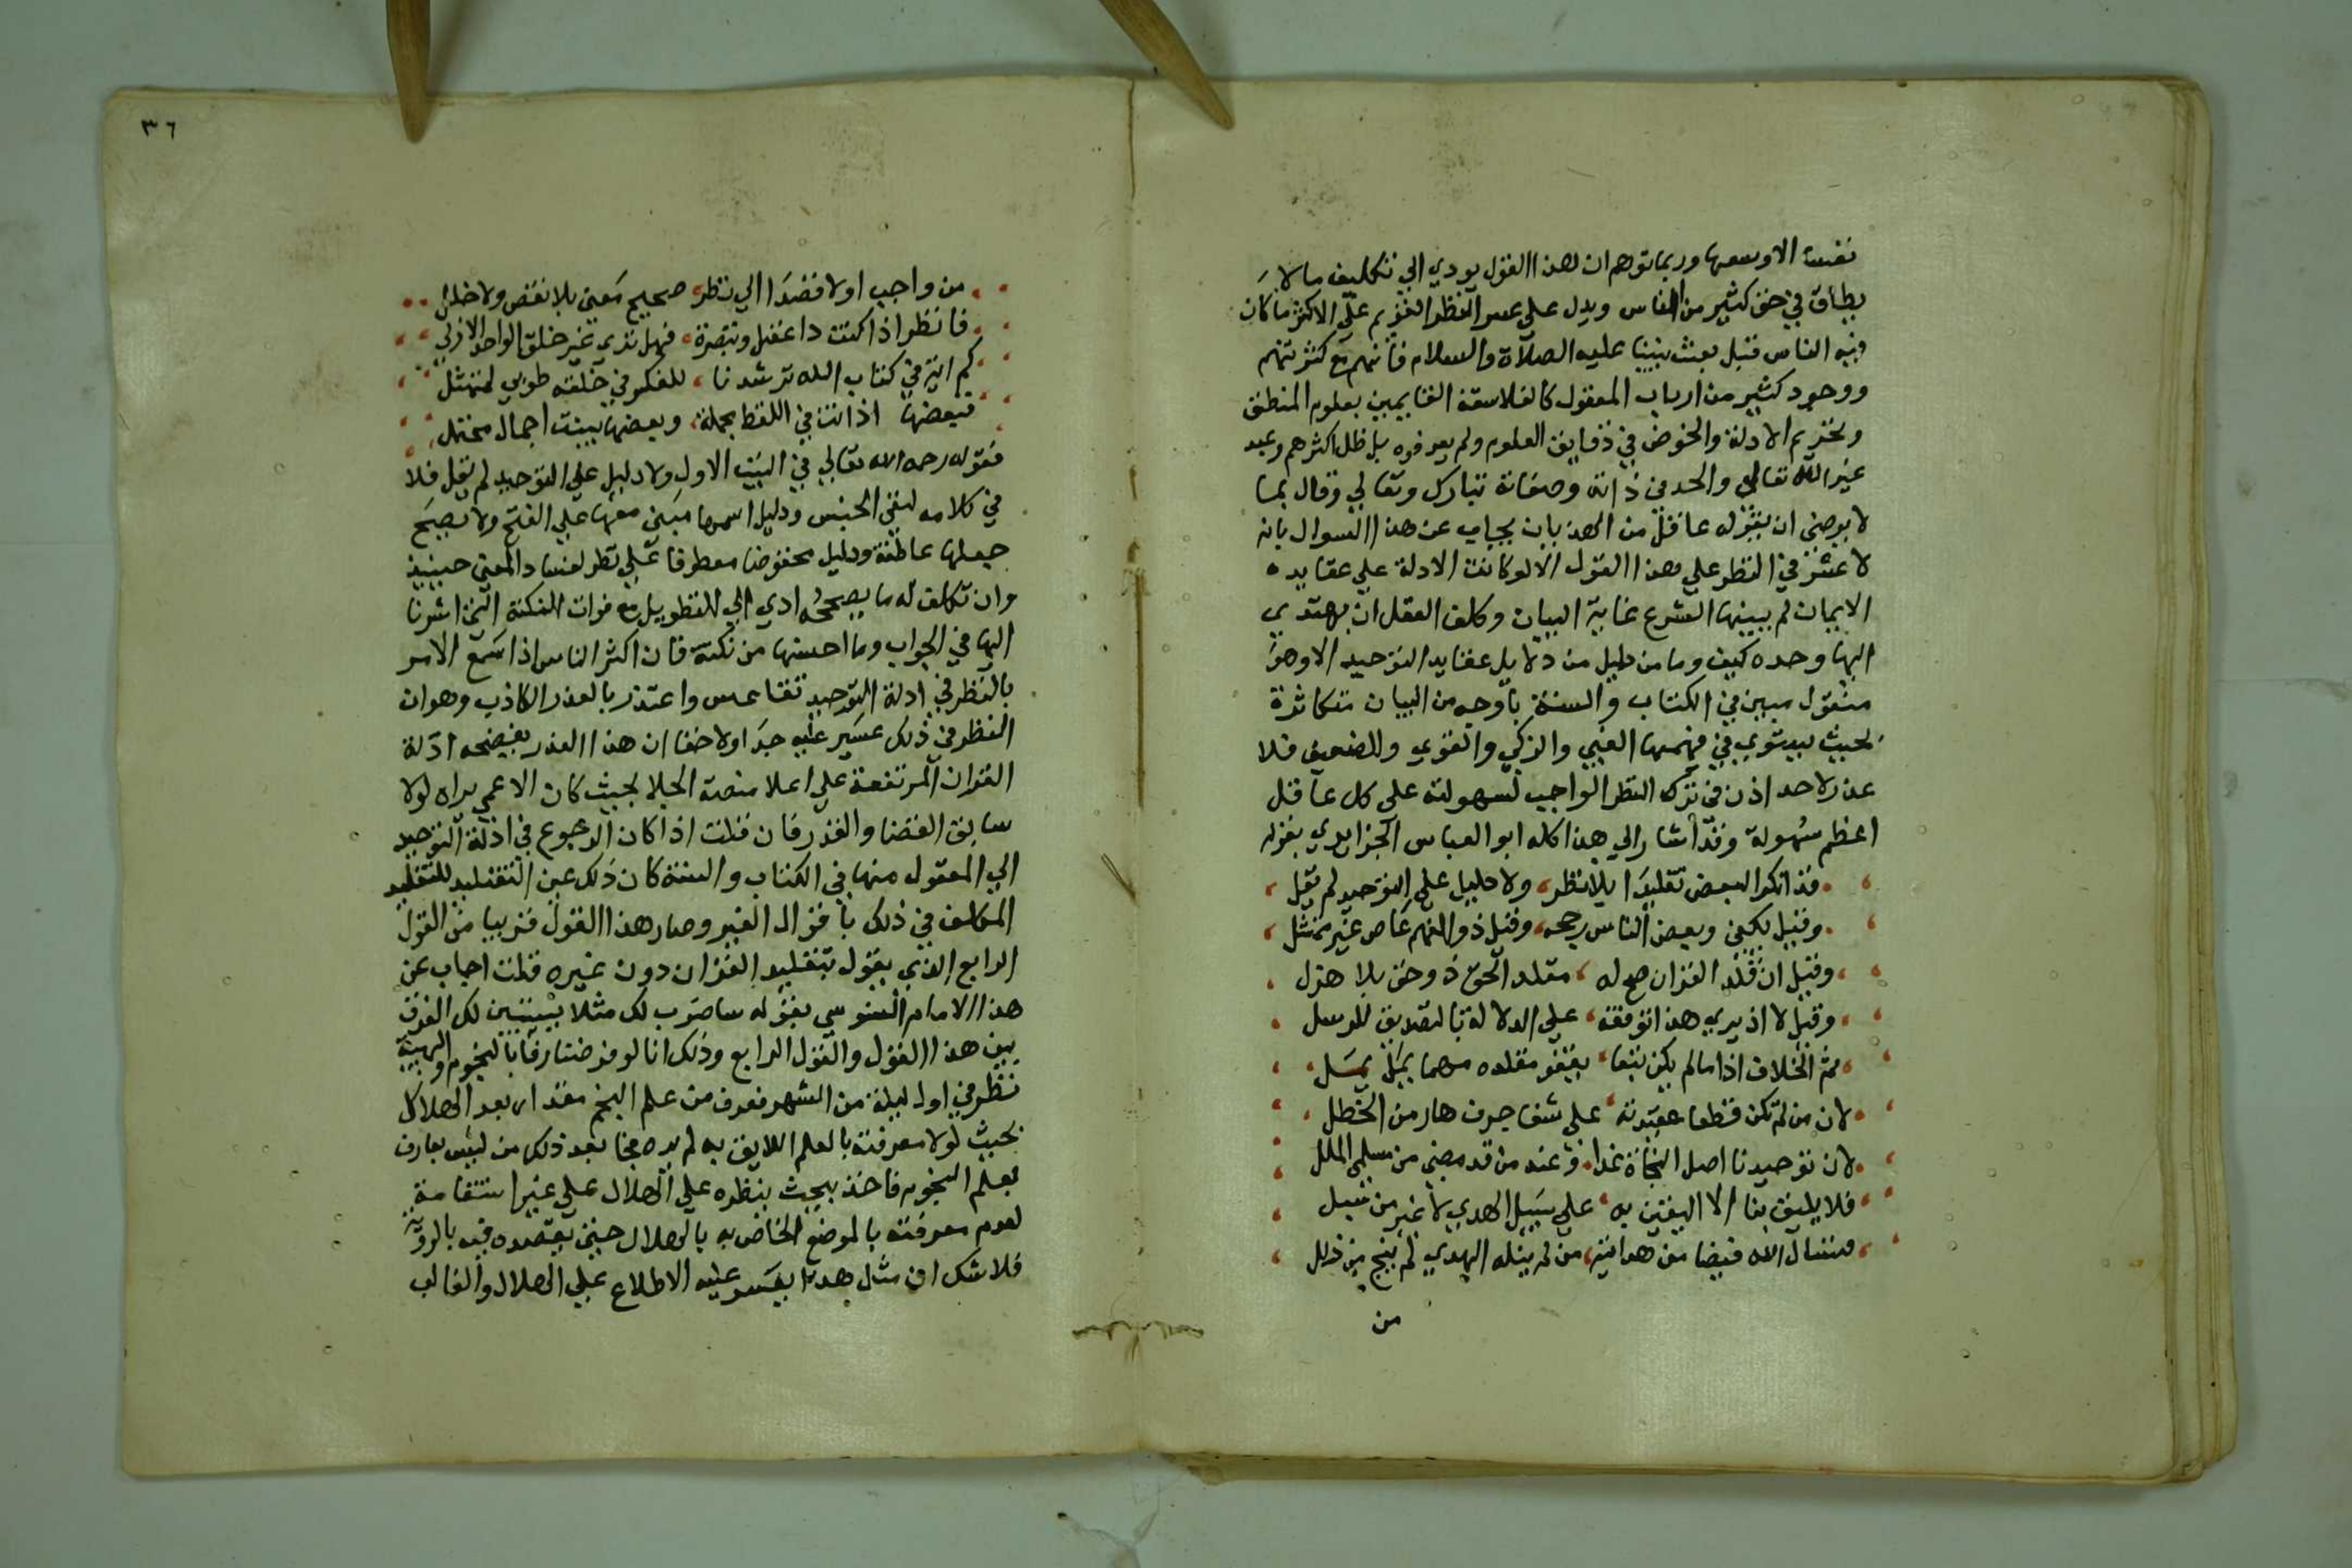 نفسا الا وسعها وربما توهم ان هذا القول يودي الي تكليف ما لا
يطاق في حق كثير من الناس ويدل على عسر النظر القويم علي الاكثر ما كان
فيه الناس قبل بعث نبينا عليه الصلاة والسلام فانهم مع كثرتهم
ووجود كثير من ارباب المعقول كالفلاسفة القايمين بعلوم المنطق
وتحرير الادلة والخوض في دقايق العلوم ولم يعرفوه بل ظل اكثرهم وعبد
غير الله تعالي والحد في ذاته وصفاته تبارك وتعالي وقال بما
لا يرضي ان يقوله عاقل من الهذيان يجاب عن هذا السوال بانه
لا عسر في النظر علي هذا القول الا لو كانت الادلة علي عقايد
الايمان لم يبينها الشرع غاية البيان وكلف العقل ان يهتدي
اليها وحده كيف وما من دليل من دلايل عقايد التوحيد الا وهو
منقول مبين في الكتاب والسنة باوجه من البيان متكاثرة
بحيث يستوي في فهمها الغبي والزكي والقوي والضعيف فلا
عذر لاحد اذن في ترك النظر الواجب لسهولته علي كل عاقل
اعظم سهولة وقد اشار الي هذا كله ابو العباس الجزايري بقوله
قد انكر البعض تقليدا بلا نظر ولا دليل علي التوحيد لم يقل
وقيل يكفي وبعض الناس رجحه وقيل ذو الفهم عاص غير ممتثل
وقيل ان قلد القران صح له مقلد الحق ذو حق بلا هزل
وقيل لا اذ يري هذا توقفه علي الدلالة بالتصديق للرسل
ثم الخلاف اذا ما لم يكن تبعا يقفو مقلده مهما يمل يمل
لان من لم تكن قطعا عقيدته علي شفا جرف هار من الخطل
لان توحيدنا اصل النجاة غدا وعند من قد مضي من مسلمي الملل
فلا يليق بنا الا اليقين به علي سبيل الهدي لا غير من سبل
فنسال الله فيضا من هدايته من لم ينله الهدي لم ينج من زلل
من
٣٦
من واجب اولا قصدا الي نظر صحيح معني بلا نقص ولا خلل
فانظر اذا كنت ذا عقل وتبصرة فهل تري غير خلق الواحد الازلي
كم اية في كتاب الله ترشدنا للفكر في خلقه طوبي لممتثل
فبعضها اذ اتت في اللفظ مجملة وبعضها بينت اجمال محتمل
فقوله رحمه الله تعالي في البيت الاول ولا دليل علي التوحيد لم يقل فلا
في كلامه لنفي الجنس ودليل اسمها مبني معها علي الفتح ولا يصح
جعلها عاطفة ودليل مخفوضا معطوفا علي نظر لفساد المعني حينيذ
وان تكلف له ما يصححه ادي الي التطويل مع فوات النكتة التي اشرنا
اليها في الجواب وما احسنها من نكتة فان اكثر الناس اذا سمع الامر
بالنظر في ادلة التوحيد تقاعس واعتذر بالعذر الكاذب وهو ان
النظر في ذلك عسير عليه جدا ولا خفا ان هذا العذر يفضحه ادلة
القران المرتفعة علي اعلا منصة الجلا بحيث كان الاعمي يراه لولا
سابق القضا والقدر فان قلت اذا كان الرجوع في ادلة التوحيد
الي المعقول منها في الكتاب والسنة كان ذلك عين التقليد لتقليد
المكلف في ذلك باقوال الغير وصار هذا القول قريبا من القول
الرابع الذي يقول بتقليد القران دون غيره قلت اجاب عن
هذا الامام السنوسي بقوله ساضرب لك مثلا يستبين لك الفرق
بين هذا القول والقول الرابع وذلك انا لو فرضنا عارفا بالنجوم والهيئة
نظر في اول ليلة من الشهر فعرف من علم النجم مقدار بعد الهلال
بحيث لولا معرفته بالعلم اللايق به لم يره فجا بعد ذلك من ليس بعارف
بعلم النجوم فاخذ يبحث بنظره علي الهلال علي غير استقامة
لعدم معرفته بالموضع الخاص به بالهلال حتي يقصده فيه بالروية
فلا شك ان مثل هذا يعسر عليه الاطلاع علي الهلال والغالب